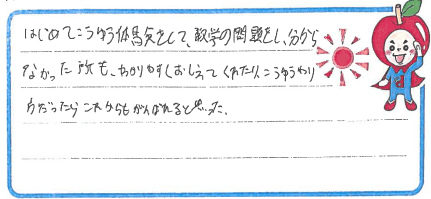 はじめてこうゆう体馬矢をして、数学の問題をし、分から
なかった所も、わかりやすくおしえてくれたり、こうゆうやり
方だったらこれからもがんばれると思った、